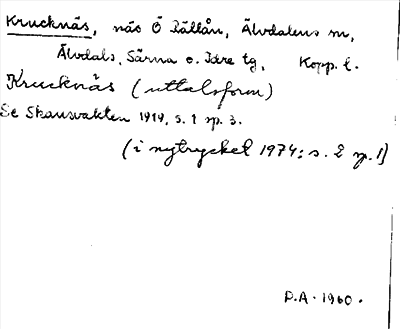 Krucknäs, näs Ö Rällån, Älvdalens sn,
Älvdals, Särna o. Idre tg, Kopp. l.
Krucknäs (uttalsform)
Se Skansvakten 1919, s. 1 sp. 3.
(i nytrycket 1974: s. 2 sp. 1)
D.A. 1960.